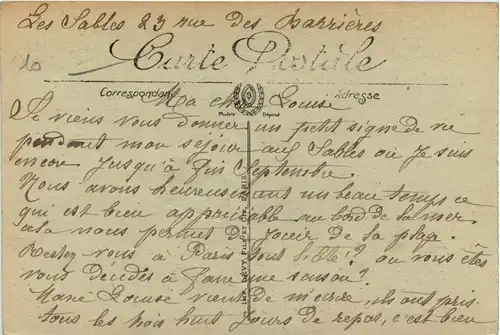 Les Sables 23 rue des Barrières
Carte Postale
Correspondance
Adresse
Modèle Déposé
Ma ch Louise
Je viens vous donner un petit signe de vie
pendant mon séjour aux Sables où je suis
encore jusqu'à fin Septembre.
Nous avons heureusement un beau temps ce
qui est bien appréciable au bord de la mer.
cela nous permet de jouir de la plage.
Restez vous à Paris tout l'Été? ou vous êtes
vous décidés à faire une saison?
Marie Louise vient de m'écrire, ils ont pris
tous les trois huit jours de repos, c'est bien
LÉVY FILS ET CIE, PARIS